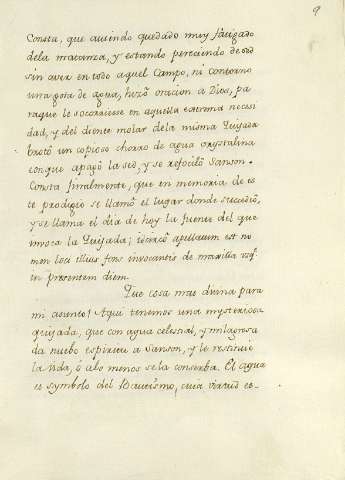 9
Consta, que aviendo quedado muy fatigado
dela matanza, y estando pereciendo de sed
sin aver en todo aquel Campo, ni contorno
una gota de agua, hizo oracion a Dios, pa
raque le socorriesse en aquella extrema necesi
dad, y del diente molar dela misma Quijada
brotó un copioso chorro de agua crystalina
conque apagò la sed, y se refociló Sanson.
Consta finalmente, que en memoria de es
te prodigio se llamó el lugar donde succedió,
y se llama el dia de hoy la fuente del que
invoca la Quijada; idcircò apellatum est no
men loci illius fons invocantis de maxilla usq.
in presentem diem.
Que cosa mas divina para
mi asunto! Aqui tenemos una mysteriosa
quijada, que con agua celestial, y milagrosa
da nuebo espiritu a Sanson, y le restituie
la vida, ó alo menos se la conserba. El agua
es symbolo del Bautismo, cuia virtud es-